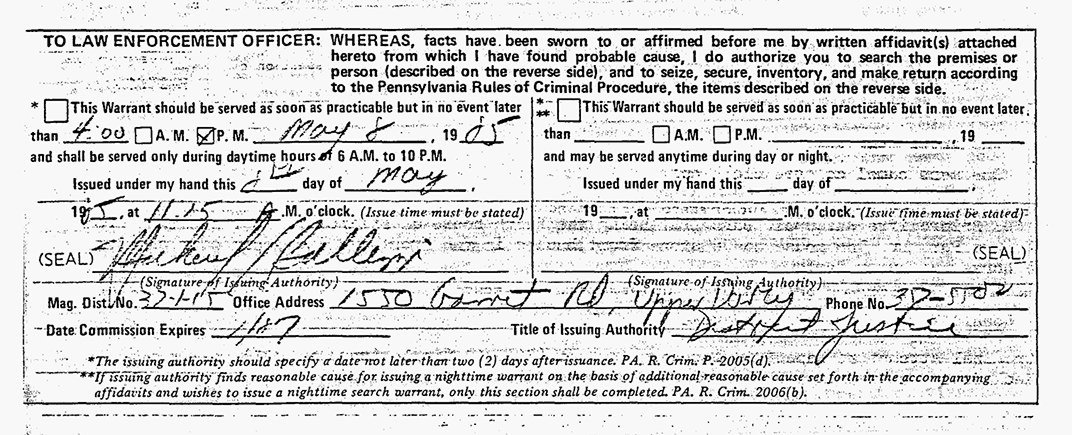 TO LAW ENFORCEMENT OFFICER: WHEREAS, facts have been sworn to or affirmed before me by written affidavit(s) attached
hereto from which I have found probable cause, I do authorize you to search the premises or
person (described on the reverse side), and to seize, secure, inventory, and make return according
to the Pennsylvania Rules of Criminal Procedure, the items described on the reverse side.
* This Warrant should be served as soon as practicable but in no event later
than 4:00 A.M. P.M. May 8, 1985
and shall be served only during daytime hours of 6 A.M. to 10 P.M.
Issued under my hand this day of May.
19, at 11:15 A.M. o'clock. (Issue time must be stated)
(SEAL)
(Signature of Issuing Authority)
*
** This Warrant should be served as soon as practicable but in no event later
than A.M. P.M. , 19
and may be served anytime during day or night.
Issued under my hand this day of .
19 , at .M. o'clock. (Issue time must be stated)
(SEAL)
(Signature of Issuing Authority)
Mag. Dist. No. 32-1-15 Office Address 1550 Garret Rd, Upper Darby Phone No.
Date Commission Expires 1/87 Title of Issuing Authority District Justice
*The issuing authority should specify a date not later than two (2) days after issuance. PA. R. Crim. P. 2005(d).
**If issuing authority finds reasonable cause for issuing a nighttime warrant on the basis of additional reasonable cause set forth in the accompanying
affidavits and wishes to issue a nighttime search warrant, only this section shall be completed. PA. R. Crim. 2006(b).